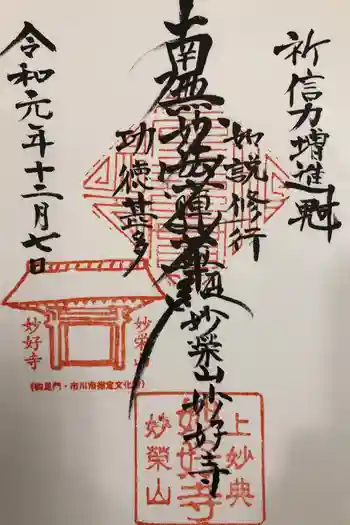 祈信力増進
如説修行
南無妙法蓮華経
功徳甚多
令和元年十二月七日
妙栄山妙好寺
妙栄山
妙好寺
(四足門・市川市指定文化財)
上妙典
妙好寺
妙榮山